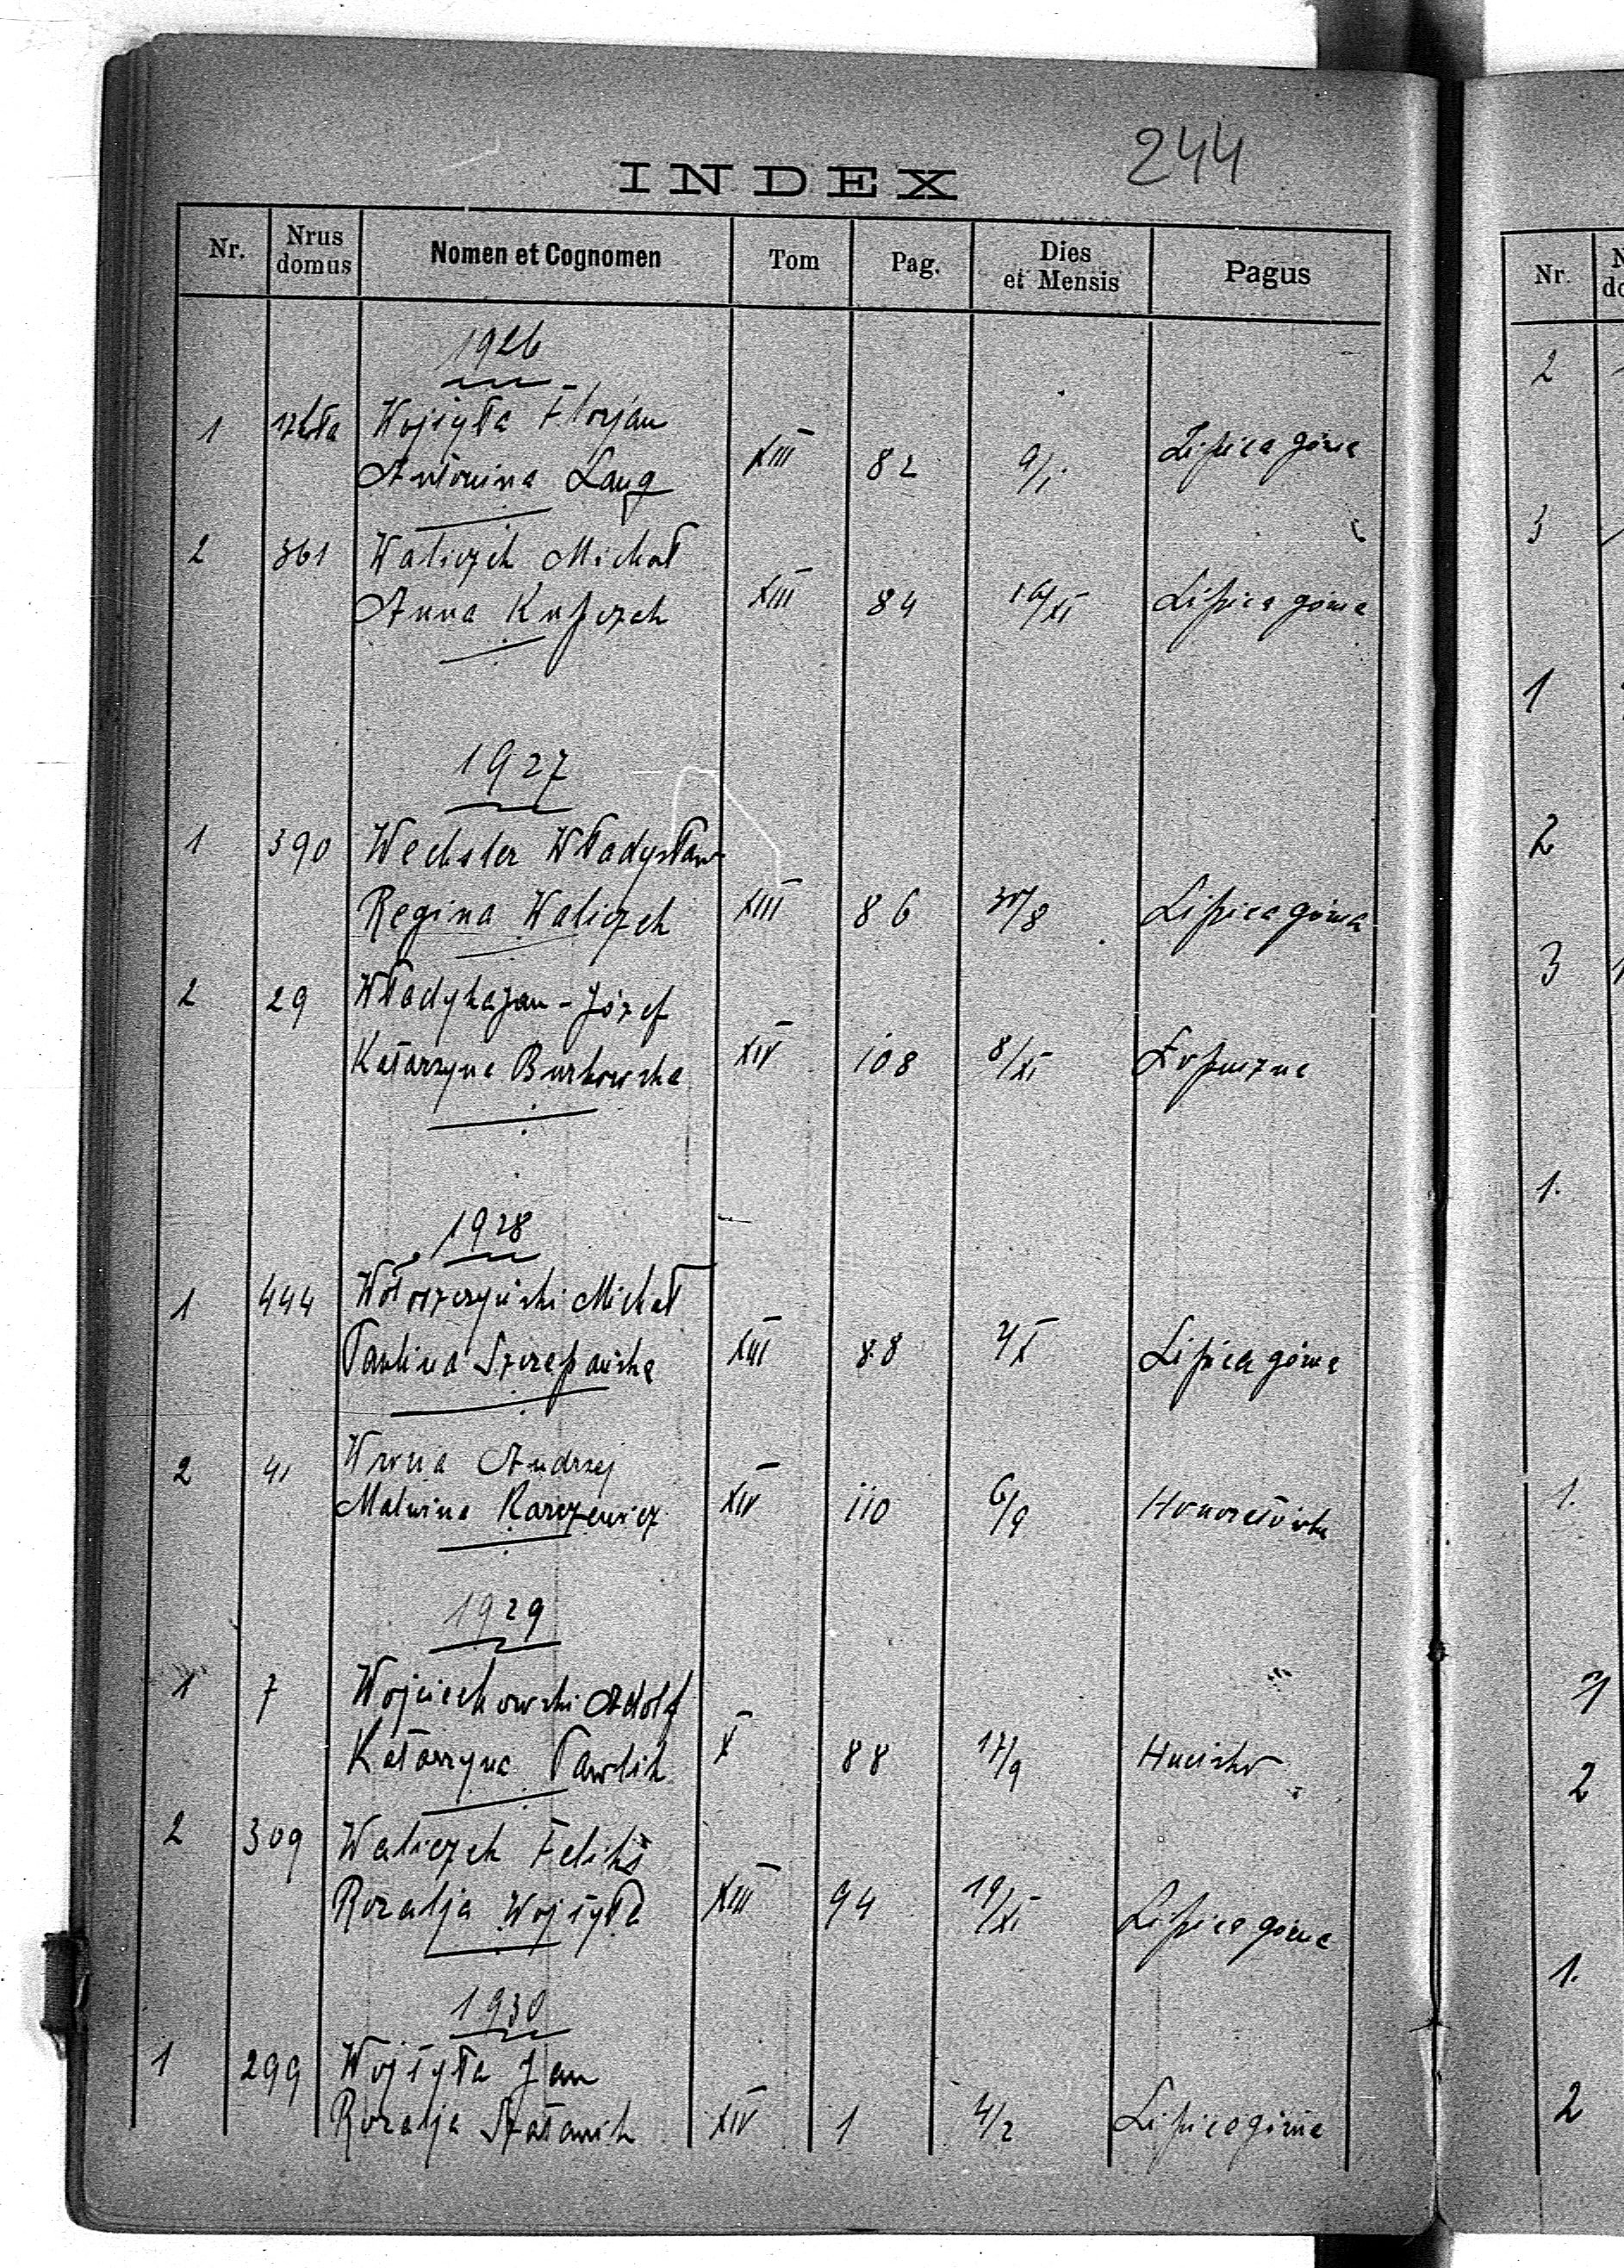 244
INDEX
Nr. Nrus domus Nomen et Cognomen Tom Pag. Dies et Mensis Pagus
1926
1 Wojsyła Florjan
Antonina Lang XIII 82 9/I Lipica górna
2 361 Waliczek Michał
Anna Kupczak XIII 84 16/XI Lipica górna
1927
1 390 Wechsler Władysław
Regina Waliczek XIII 86 30/8 Lipica górna
2 29 Władyka Jan-Józef
Katarzyna Burkowska XIV 108 8/XI Łopuszna
1928
1 444 Wołoszczyński Michał
Paulina Szczepańska XIII 88 Lipica górna
2 41 Wrona Andrzej
Malwina Karczewicz XIV 110 6/9 Honoratówka
1929
1 7 Wojciechowski Adolf
Katarzyna Pawlik X 88 17/9 Hucisko
2 309 Waliczek Feliks
Rozalja Wojsyła XIII 94 19/XI Lipica górna
1930
1 299 Wojsyła Jan
Rozalja XIV 1 4/2 Lipica górna
Nr.
2
3
1
2
3
1.
1.
2
1.
2